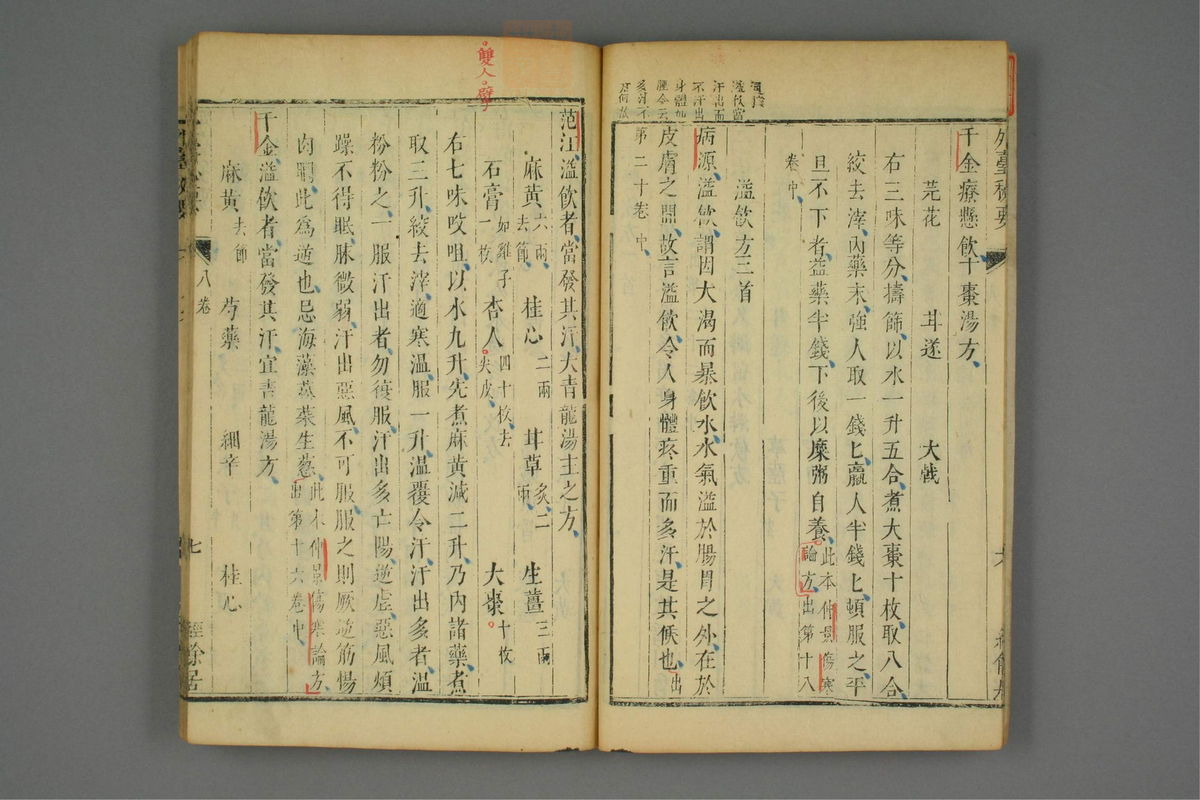 外臺秘要
千金療懸飲十棗湯方
芫花 甘遂 大戟
右三味等分擣篩以水一升五合煮大棗十枚取八合
絞去滓內藥末強人取一錢匕羸人半錢匕頓服之平
旦不下者益藥半錢下後以糜粥自養此本仲景傷寒論方出第十八
卷中
溢飲方三首
病源溢飲謂因大渴而暴飲水水氣溢於腸胃之外在於
皮膚之間故言溢飲令人身體疼重而多汗是其候也出
第二十卷中
范汪溢飲者當發其汗大青龍湯主之方
麻黃六兩去節 桂心二兩 甘草炙二兩 生薑三兩
石膏如雞子一枚 杏人四十枚去尖皮 大棗十枚
右七味㕮咀以水九升先煮麻黃減二升乃內諸藥煮
取三升絞去滓適寒溫服一升溫覆令汗汗出多者溫
粉粉之一服汗出者勿復服汗出多亡陽逆虛惡風煩
躁不得眠脉微弱汗出惡風不可服服之則厥逆筋惕
肉瞤此爲逆也忌海藻菘菜生蔥此本仲景傷寒論方出第十六卷中
千金溢飲者當發其汗宜青龍湯方
麻黃去節 芍藥 細辛 桂心
八卷
七
經餘居
雙人
擘